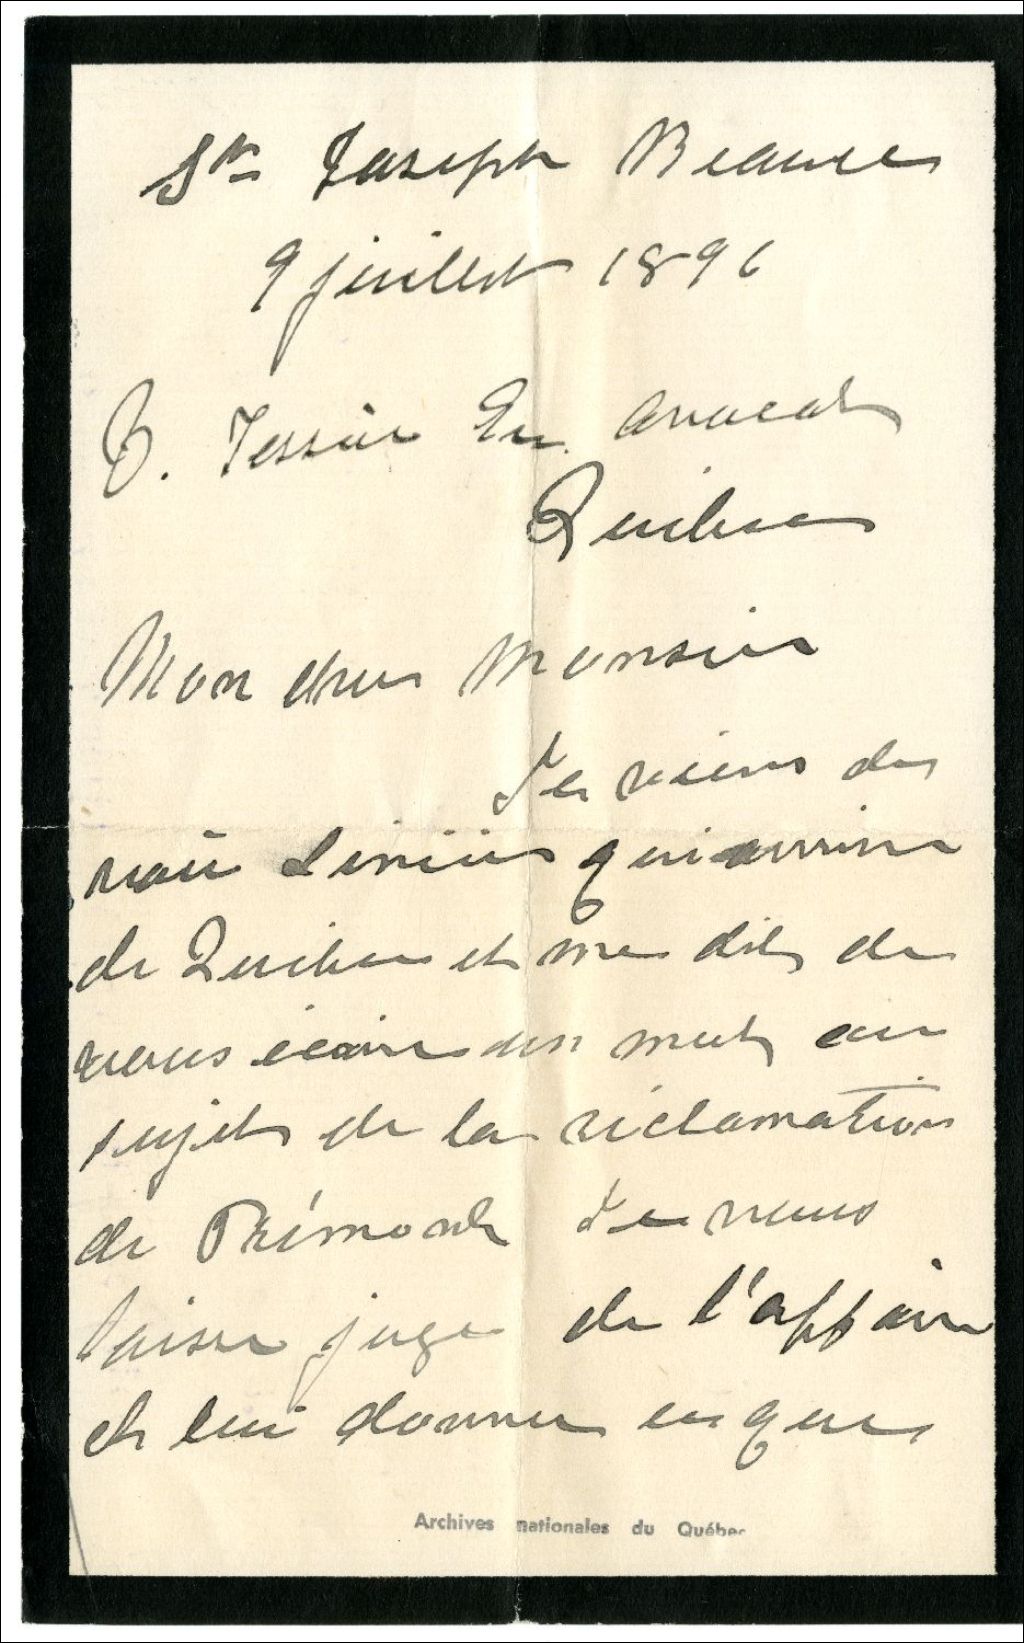 St Joseph Beauce
9 juillet 1896
J. Tessier Ecr. avocat
Québec
Mon cher Monsieur
Je viens de
voir Linière qui arrive
de Québec et me dit de
vous écrire un mot au
sujet de la réclamation
de Prémont Je vous
laisse juge de l'affaire
et lui donner ce que
Archives nationales du Québec